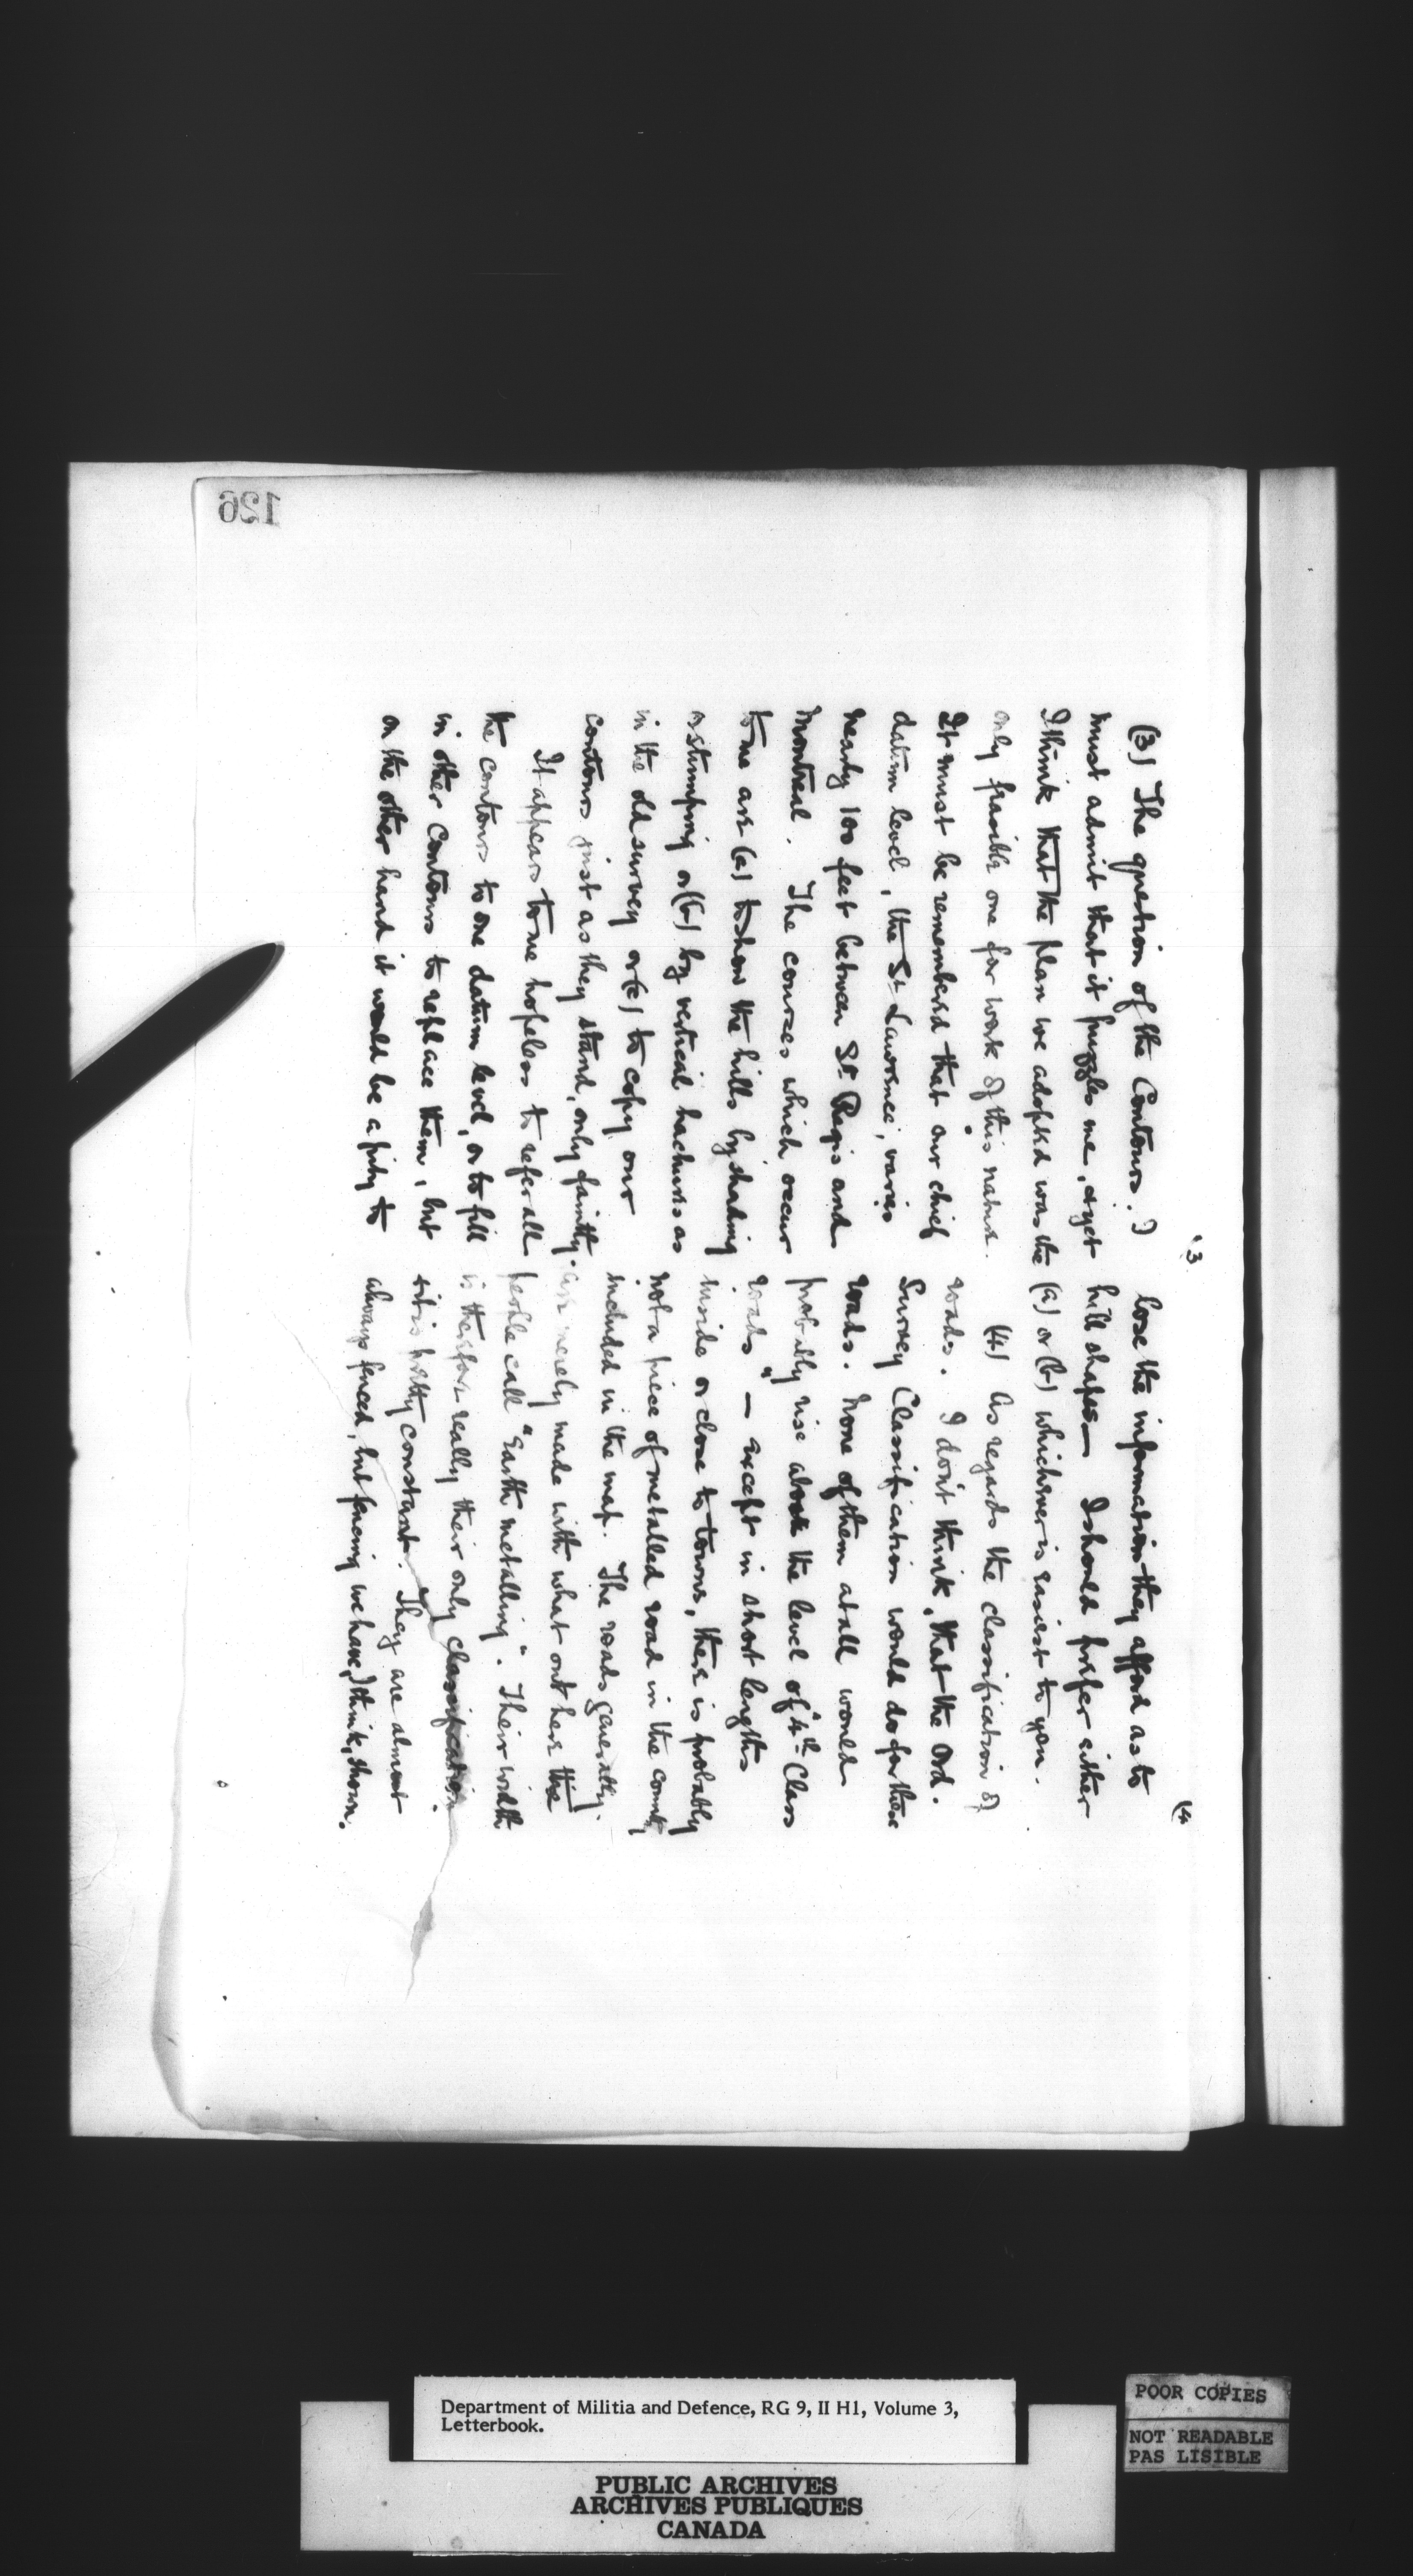 126
3
(3) The question of the Contours. I
must admit that it puzzles me, & yet
I think that the plan we adopted was the
only feasible one for work of this nature.
It must be remembered that our chief
datum level, the St Lawrence, varies
nearly 100 feet between St Regis and
Montreal. The courses which occur
to me are (a) to show the hills by shading
or stumping or (b) by vertical hachures as
in the old survey or (c) to copy our
contours just as they stand, only faintly.
It appears to me hopeless to refer all
the contours to one datum level, or to fill
in other contours to replace them, but
on the other hand it would be a pity to
(4
lose the information they afford as to
hill shapes — I should prefer either
(a) or (b) whichever is easiest to you.
(4) As regards the classification of
roads. I don't think, that the Ord.
Survey Classification would do for these
roads. None of them at all would
probably rise above the level of "4th Class
roads" — except in short lengths
inside or close to towns, there is probably
not a piece of metalled road in the country
included in the map. The roads generally
are merely made with what out here the
people call "Earth metalling". Their width
is therefore really their only classification
& it is pretty constant. They are almost
always fenced, but fencing we have, I think, shown.
Department of Militia and Defence, RG 9, II H1, Volume 3,
Letterbook.
PUBLIC ARCHIVES
ARCHIVES PUBLIQUES
CANADA
POOR COPIES
NOT READABLE
PAS LISIBLE